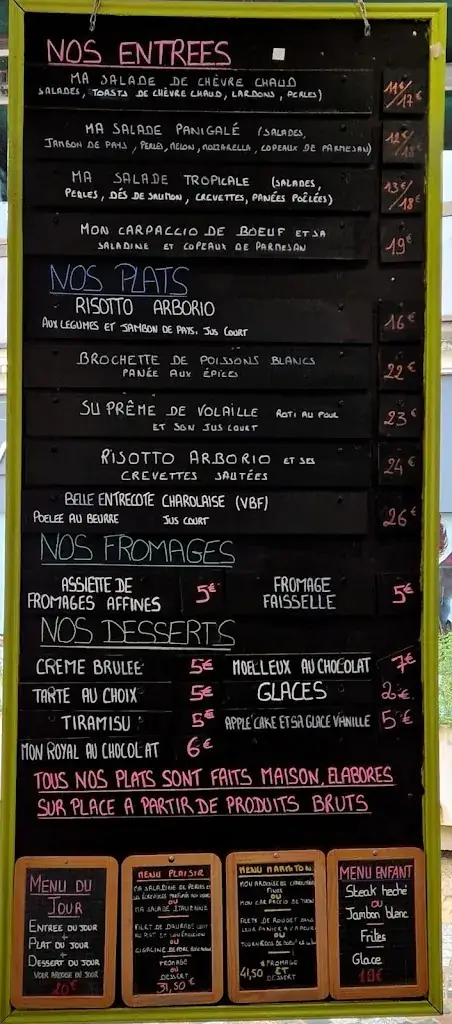 NOS ENTREES
MA SALADE DE CHÈVRE CHAUD
SALADES, TOASTS DE CHÈVRE CHAUD, LARDONS, PERLES)
11€/17€
MA SALADE PANIGALÉ (SALADES,
JAMBON DE PAYS, PERLES, MELON, MOZZARELLA, COPEAUX DE PARMESAN)
12€
MA SALADE TROPICALE (SALADES,
PERLES, DÉS DE SAUMON, CREVETTES, PANÉES POÊLÉES)
13€/18€
MON CARPACCIO DE BOEUF ET SA
SALADINE ET COPEAUX DE PARMESAN
19€
NOS PLATS
RISOTTO ARBORIO
AUX LEGUMES ET JAMBON DE PAYS, JUS COURT
16€
BROCHETTE DE POISSONS BLANCS
PANÉE AUX ÉPICES
22€
SUPRÊME DE VOLAILLE ROTI AU FOUR
ET SON JUS COURT
23€
RISOTTO ARBORIO ET SES
CREVETTES SAUTÉES
24€
BELLE ENTRECOTE CHAROLAISE (VBF)
POELEE AU BEURRE JUS COURT
26€
NOS FROMAGES
ASSIETTE DE
FROMAGES AFFINES
5€
FROMAGE
FAISSELLE
5€
NOS DESSERTS
CREME BRULEE 5€
MOELLEUX AU CHOCOLAT 7€
TARTE AU CHOIX 5€
GLACES 2€
TIRAMISU 5€
APPLE CAKE ET SA GLACE VANILLE 5€
MON ROYAL AU CHOCOLAT 6€
TOUS NOS PLATS SONT FAITS MAISON, ELABORES
SUR PLACE A PARTIR DE PRODUITS BRUTS
MENU DU
JOUR
ENTREE DU JOUR
+
PLAT DU JOUR
+
DESSERT DU JOUR
VOIR ARDOISE DU JOUR
20€
MENU PLAISIR
MA SALADINE DE PERLES ET
OU
MA SALADE ITALIENNE
FILET DE DAURADE
OU
FROMAGE
OU
DESSERT
31,50€
MENU MARMITON
MON ARDOISE DE
OU
MON CARPACCIO DE
FILETS DE ROUGET
OU
FROMAGE
41,50 ET
DESSERT
MENU ENFANT
Steak haché
OU
Jambon blanc
Frites
Glace
10€